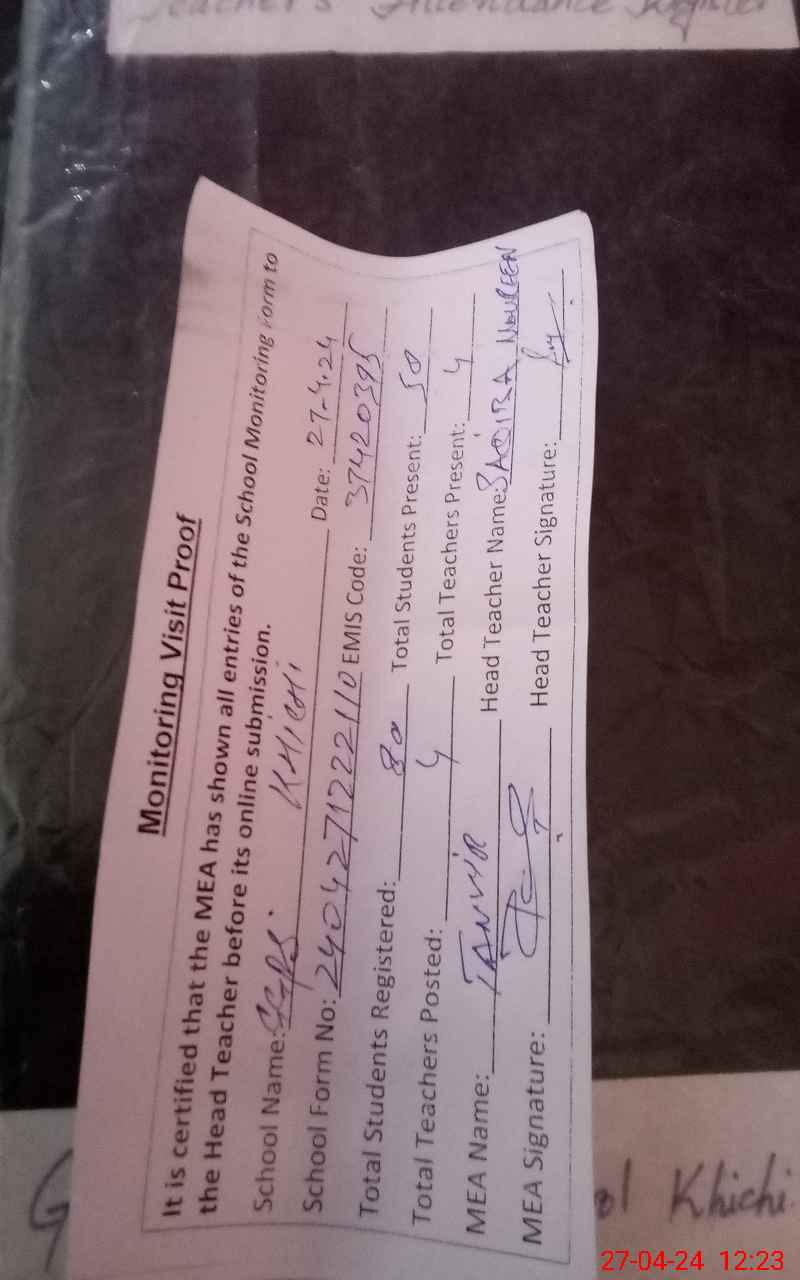 Teacher's Attendance Register
Monitoring Visit Proof
It is certified that the MEA has shown all entries of the School Monitoring Form to
the Head Teacher before its online submission.
School Name: GGPS. KHICHI Date: 27-4-24
School Form No: 2404271222110 EMIS Code: 37420395
Total Students Registered: 80 Total Students Present: 50
Total Teachers Posted: 4 Total Teachers Present: 4
MEA Name: TANVIR Head Teacher Name: SAQIBA NOUREEN
MEA Signature: Head Teacher Signature:
Khichi
27-04-24 12:23